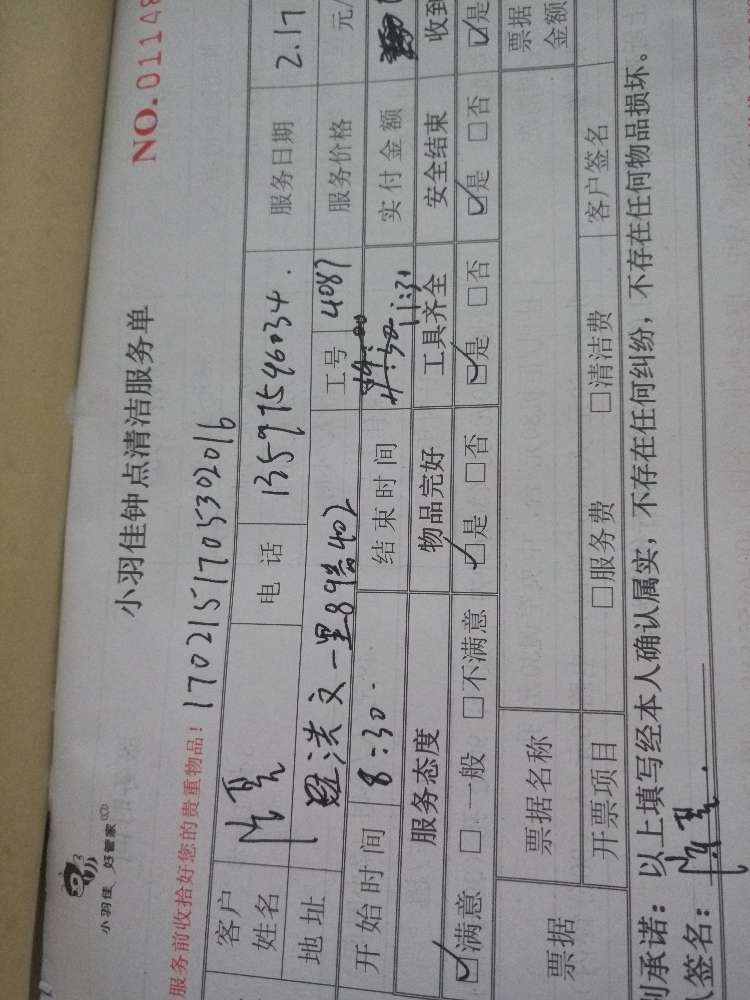 小羽佳 好管家
小羽佳钟点清洁服务单
NO.01148
服务前收拾好您的贵重物品！ 1702151705302016
客户姓名 电话 13597546034. 服务日期 2.17
地址 洪文一里89号402 工号 4087 服务价格 元/
开始时间 8:30. 结束时间 11:31 实付金额
服务态度 物品完好 工具齐全 安全结束 收到
☑满意 □一般 □不满意 ☑是 □否 ☑是 □否 ☑是 □否 ☑是
票据 票据名称 票据金额
开票项目 □服务费 □清洁费 客户签名
承诺：以上填写经本人确认属实，不存在任何纠纷，不存在任何物品损坏。
签名：